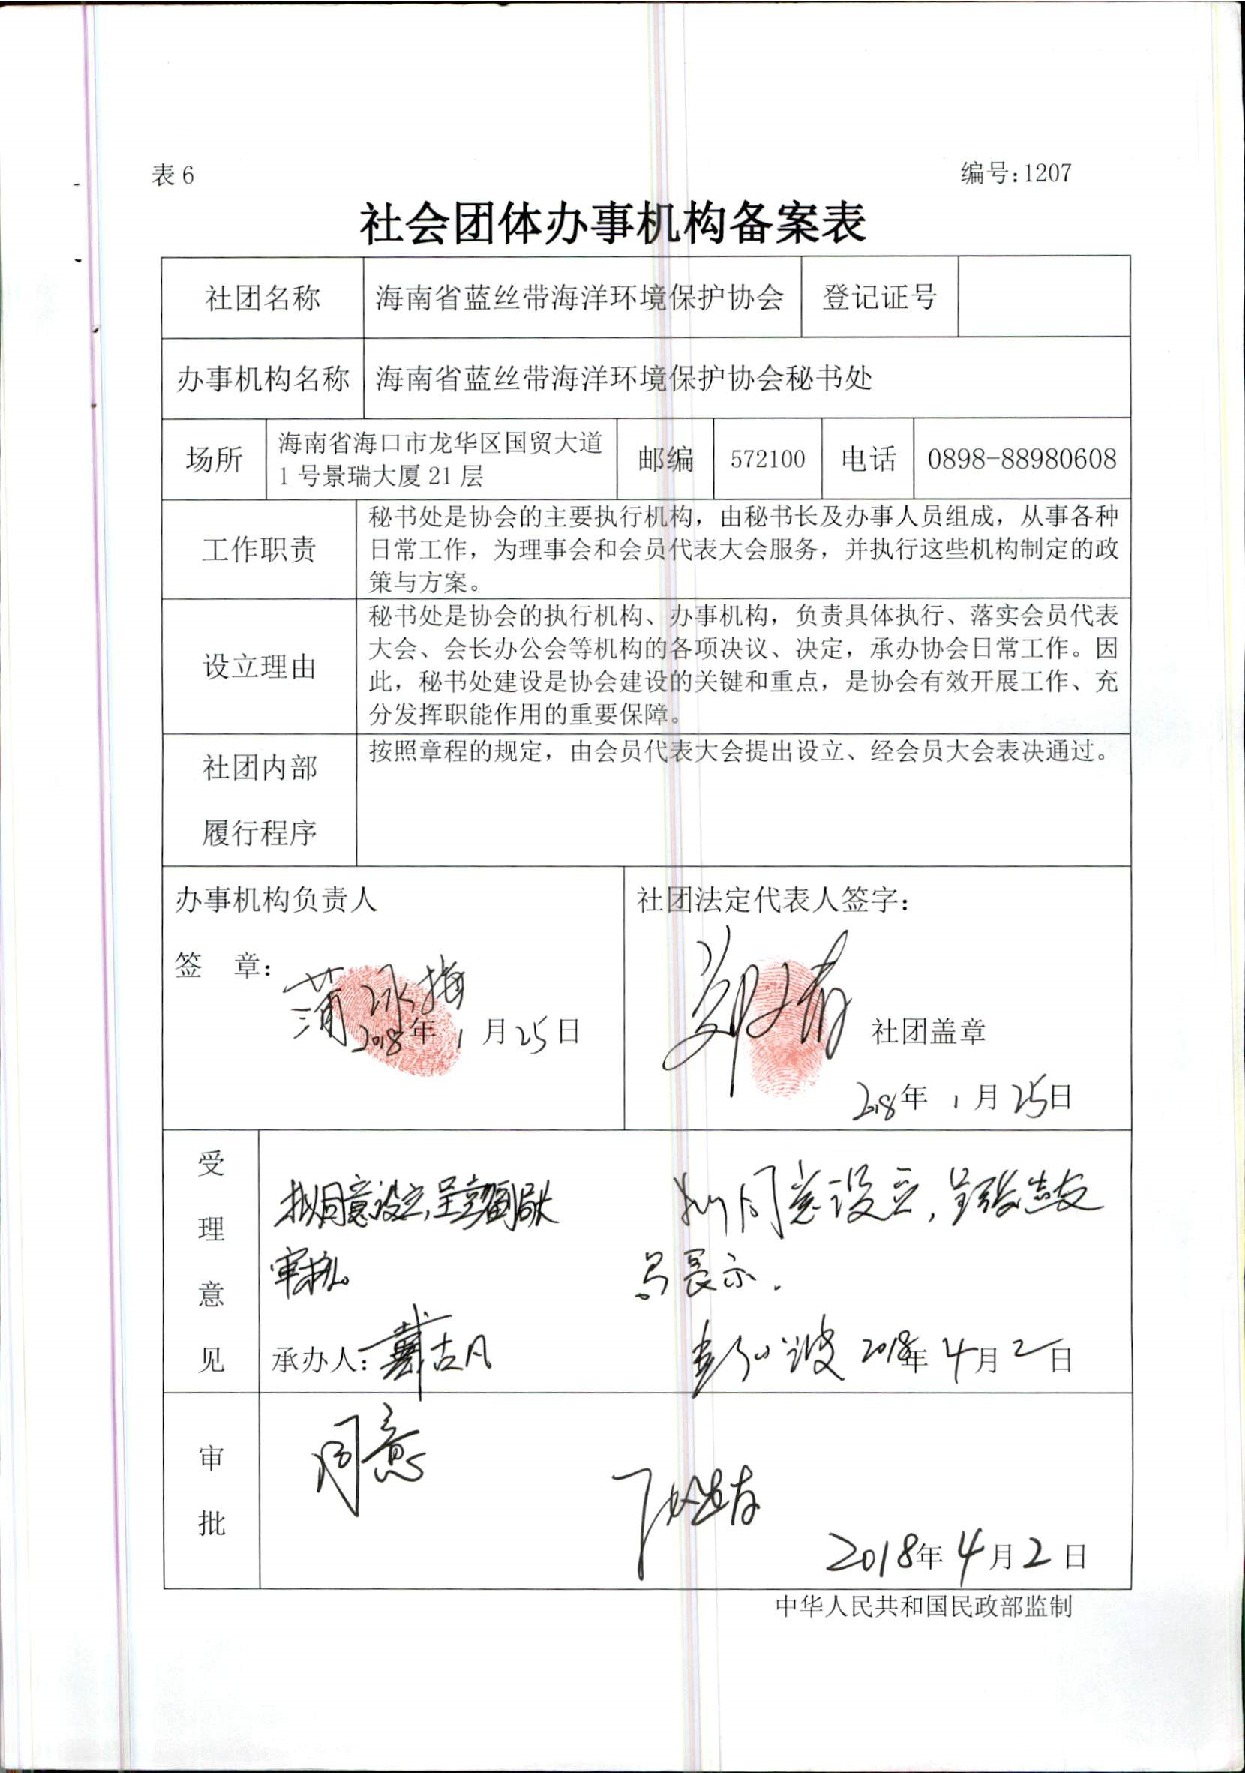 表 6
编号:1207
社会团体办事机构备案表
社团名称
海南省蓝丝带海洋环境保护协会
登记证号
办事机构名称
海南省蓝丝带海洋环境保护协会秘书处
场所
海南省海口市龙华区国贸大道
1 号景瑞大厦 21 层
邮编
572100
电话
0898-88980608
工作职责
秘书处是协会的主要执行机构，由秘书长及办事人员组成，从事各种
日常工作，为理事会和会员代表大会服务，并执行这些机构制定的政
策与方案。
设立理由
秘书处是协会的执行机构、办事机构，负责具体执行、落实会员代表
大会、会长办公会等机构的各项决议、决定，承办协会日常工作。因
此，秘书处建设是协会建设的关键和重点，是协会有效开展工作、充
分发挥职能作用的重要保障。
社团内部
履行程序
按照章程的规定，由会员代表大会提出设立、经会员大会表决通过。
办事机构负责人
签　章：
蒲冰梅
2018年 1 月 25 日
社团法定代表人签字：
社团盖章
2018年 1 月 25日
受理意见
拟同意设立，呈彭副局长
审批。
承办人：戴吉凡
拟同意设立，呈张志友
局长示.
2018年 4 月 2 日
审批
同意
2018年 4 月 2 日
中华人民共和国民政部监制